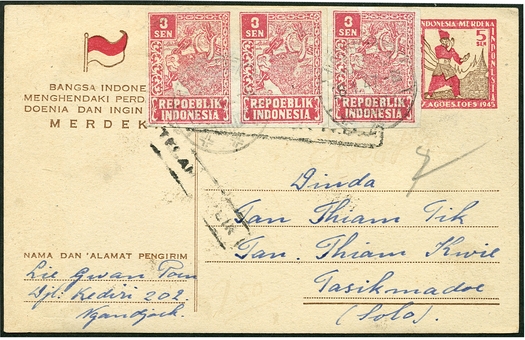 3 SEN
REPOEBLIK
INDONESIA
3 SEN
REPOEBLIK
INDONESIA
3 SEN
REPOEBLIK
INDONESIA
INDONESIA MERDEKA
5
SEN
17 AGOESTOES 1945
BANGSA INDONE
MENGHENDAKI PERD
DOENIA DAN INGIN
MERDEK
Dinda
Tan Thiam Tik
Tan Thiam Kwie
Tasikmadoe
(Solo).
NAMA DAN 'ALAMAT PENGIRIM
Lie Gwan Poen
Djl. Kediri 202
Ngandjoek.